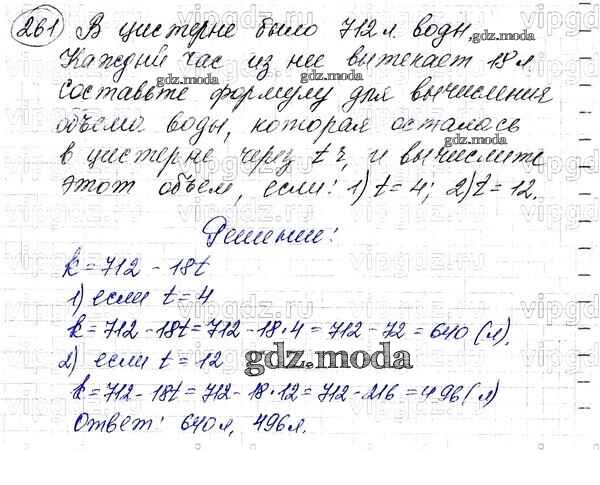 261 В цистерне было 712 л воды.
Каждый час из нее вытекает 18 л.
Составьте формулу для вычисления
объема воды, которая осталась
в цистерне через t ч, и вычислите
этот объем, если: 1) t = 4; 2) t = 12.
Решение:
k = 712 - 18t
1) если t = 4
k = 712 - 18t = 712 - 18·4 = 712 - 72 = 640 (л).
2) если t = 12
gdz.moda
k = 712 - 18t = 712 - 18·12 = 712 - 216 = 496 (л)
Ответ: 640 л, 496 л.